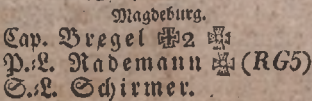 Magdeburg.
Cap. Bregel ✠2 ✠
P.=L. Rademann ✠ (RG5)
S.=L. Schirmer.